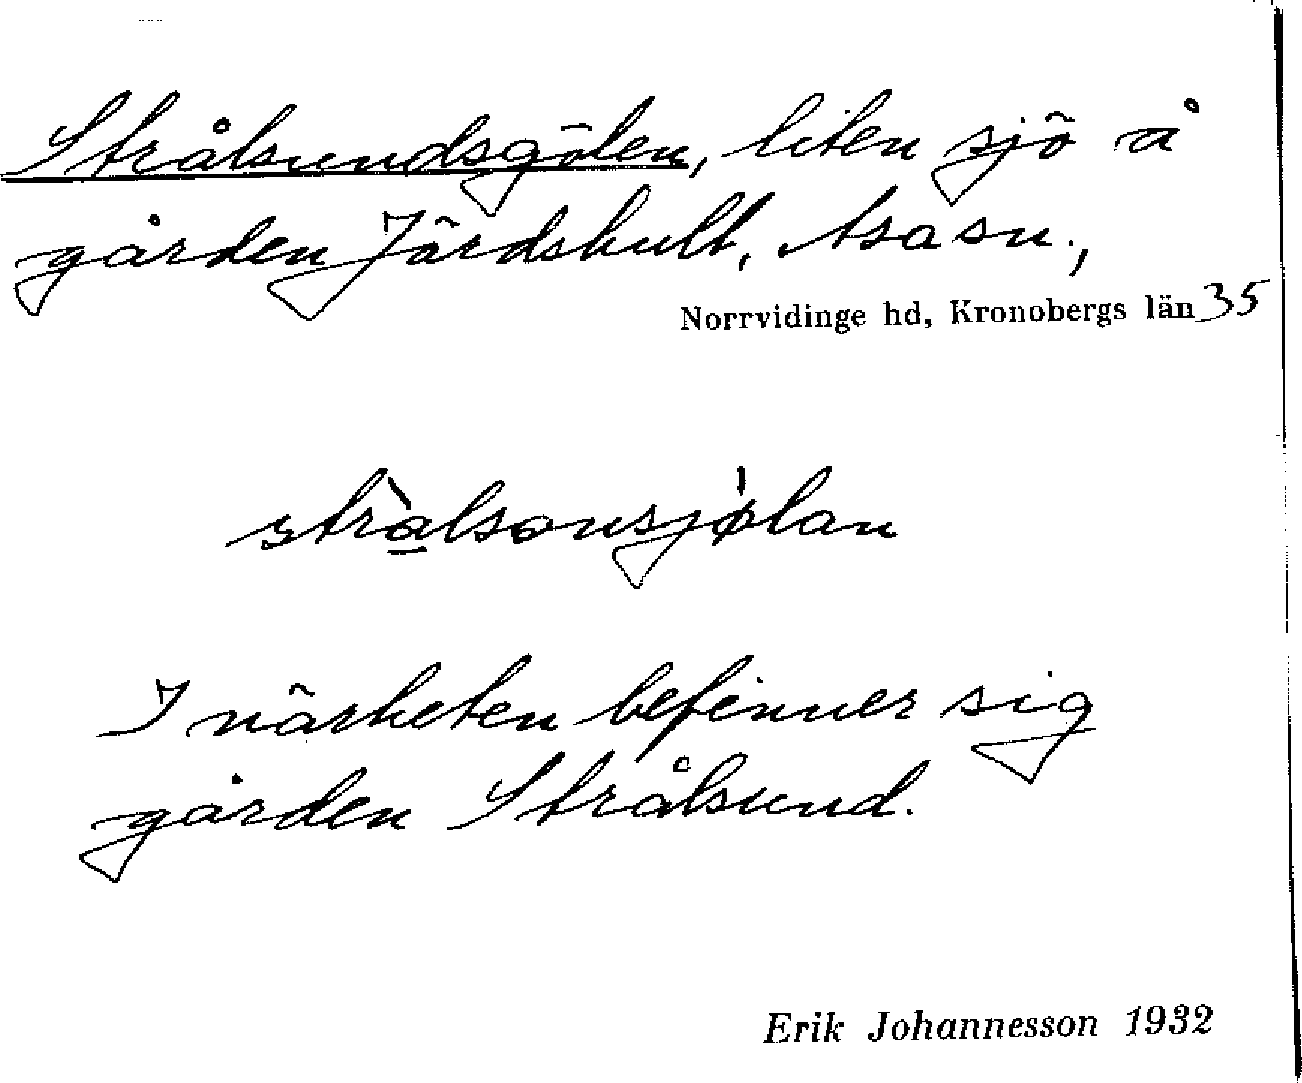 Strålsundsgölen, liten sjö å
gården Jördshult, Asa sn.,
Norrvidinge hd, Kronobergs län 35
stràlsonsjølan
I närheten befinner sig
gården Strålsund.
Erik Johannesson 1932